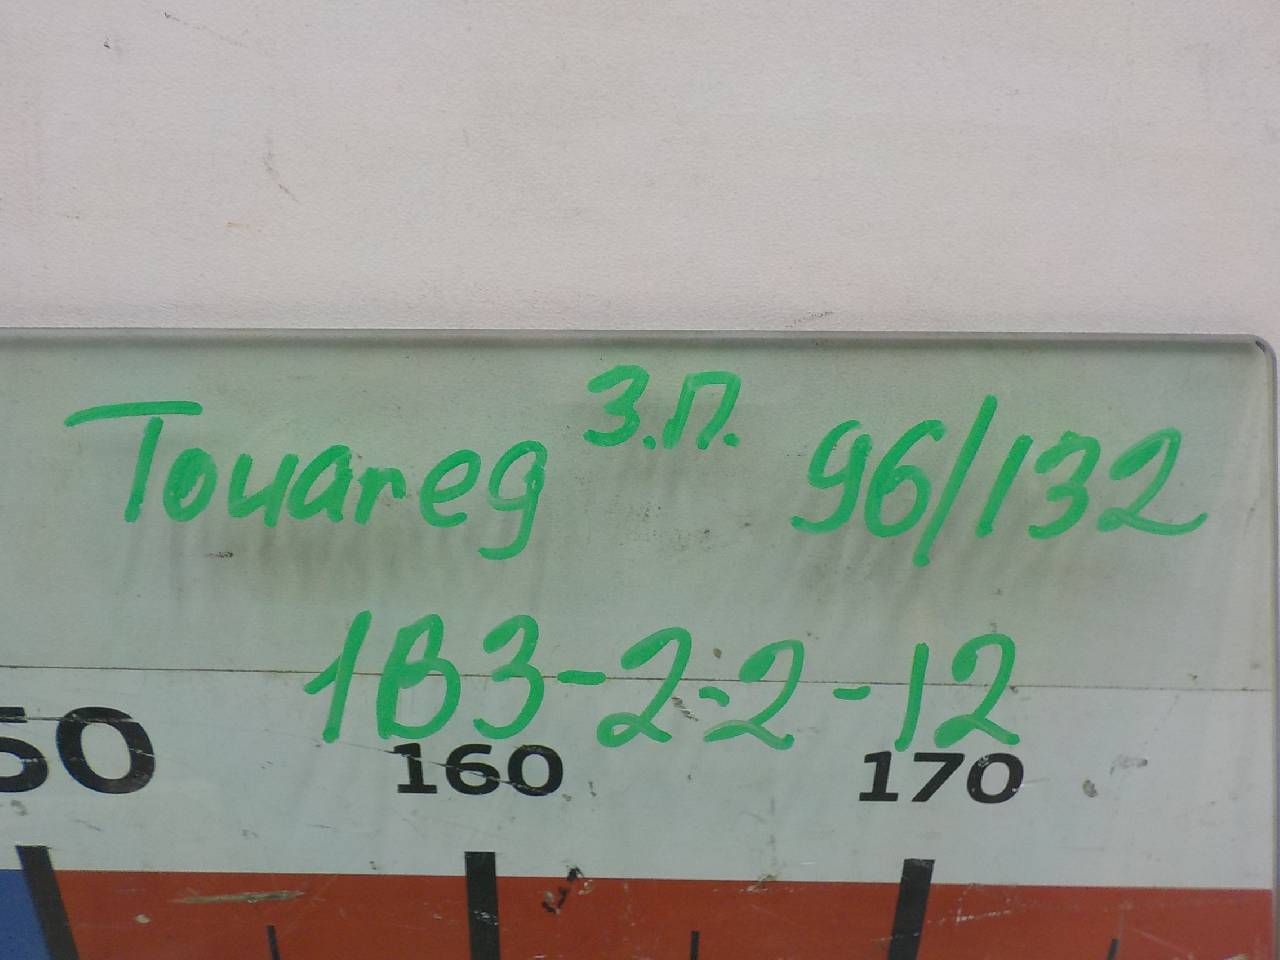 Touareg З.П. 96/132
1В3-2-2-12
50 160 170